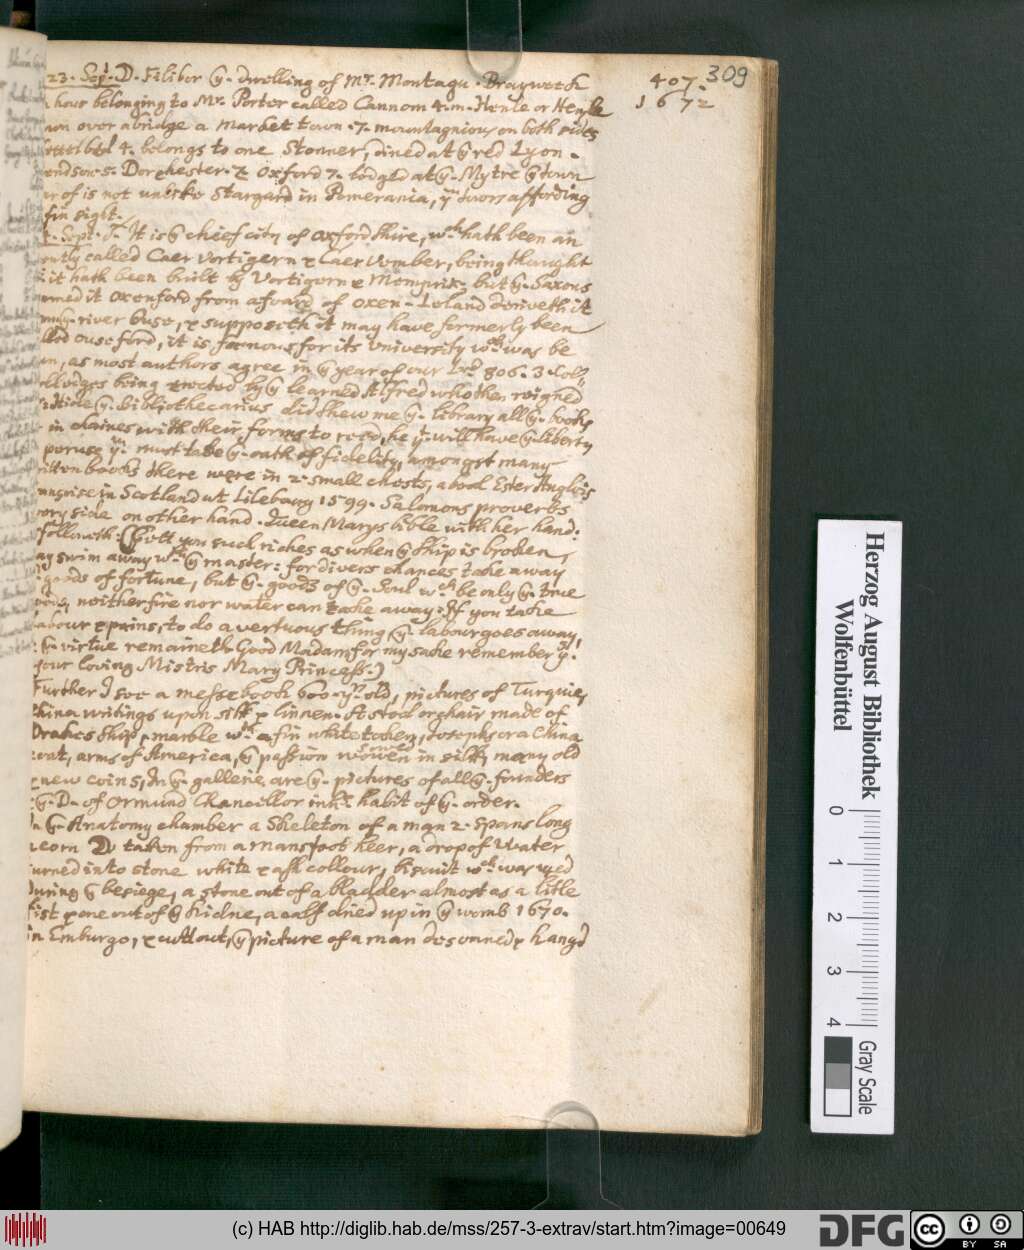 407. 309
1672
23. Sept. D. Filiber ye. dwelling of Mr. Montagu. Brayweeck
hous belonging to Mr. Porter called Cannom 4. m. Henle or Henle
over a bridge a Market town. 7. mountagnious on both sides
4. belongs to one Stonner, dined at ye red Lyon.
5. Dorchester. & Oxford 7. lodged at ye. Mytre ye town
of is not unlike Stargard in Pomerania, ye towrs affording
fin sight.
Sept. It is ye chief city of oxfordshire, wch hath been an
called Caer Vortigern & Caer Vember, being thought
it hath been built by Vortigern & Memprik. but ye. Saxons
it Oxenford from a foard of oxen. Leland deriveth it
ye. river Ouse, & supposeth it may have formerly been
ouseford, it is famous for its University wch was be
as most authors agree in ye year of our Ld 806. 3. Coll
being erected by ye learned Alfred who then reigned
Hide ye. Bibliothecarius did shew me ye. library all ye. books
in chaines with their forms to read, he yt. will have ye. liberty
peruse ym. must take ye. oath of fidelity, amongst many
books there were in 2. small chests, a book Ester Anglois
in Scotland at Lilebourg 1599. Salomons proverbs
side on other hand. Queen Marys bible with her hand.
followeth: (Gett you such riches as when ye ship is broken,
swim away wth ye master: for divers chances take away
goods of fortune, but ye. goods of ye. Soul wch be only ye. true
neither fire nor water can take away: If you take
labour & pains, to do a vertuous thing ye. labour goes away,
ye. virtue remaineth Good Madam for my sake remember yt.
your loving Mistris Mary Princess.)
Further I see a messebook 600. yrs old, pictures of Turquie,
China writings upon silk & linnen. A stool or chair made of
Drakes ship, marble wth a fin white token, Josephs or a China
coat, arms of America, ye passion woven in silk, many old
& new coins, In ye. gallerie are ye. pictures of all ye. founders
ye. D. of Ormund Chancellor in his habit of ye. order.
In ye. Anatomy chamber a Skeleton of a man 2. Spans long
a corn taken from a mans foot heer, a drop of Water
turned into stone white & ash collour, biscuit wch was used
During ye besiege, a stone out of a bladder almost as a litle
fist & one out of ye Kidne, a calf dried up in ye womb 1670.
in Emburgo, & cutt out, ye picture of a man & hangd
Herzog August Bibliothek
Wolfenbüttel
0 1 2 3 4
Gray Scale
(c) HAB http://diglib.hab.de/mss/257-3-extrav/start.htm?image=00649
DFG
cc BY SA